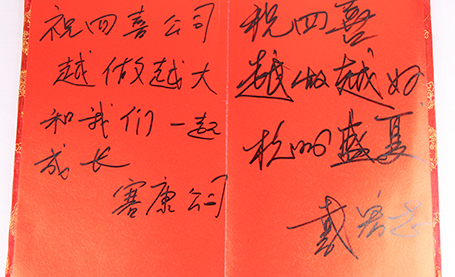 祝四喜公司
越做越大
和我们一起
成长
赛康公司
祝四喜
越做越好
杭州盛夏
戴